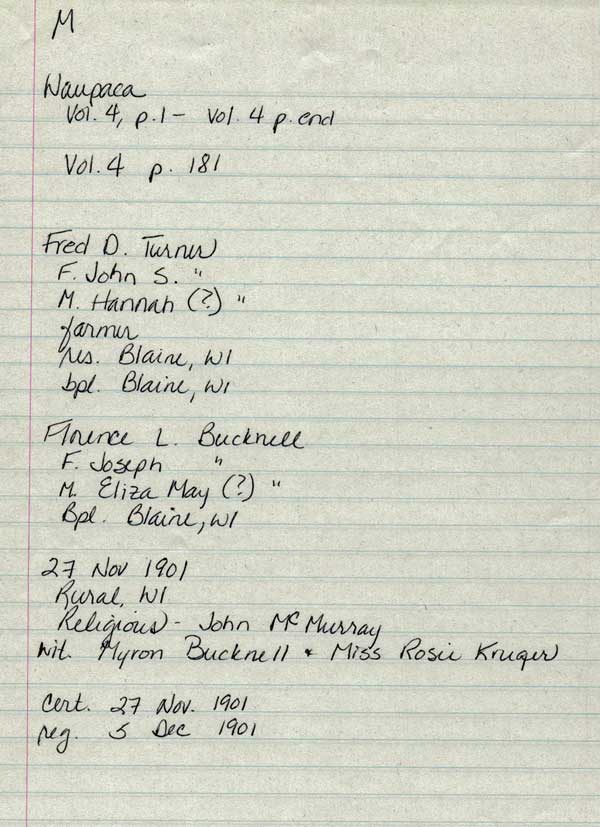 M
Waupaca
Vol. 4, p. 1 - Vol. 4 p. end
Vol. 4 p. 181
Fred D. Turner
F. John S. "
M. Hannah (?) "
farmer
res. Blaine, WI
bpl. Blaine, WI
Florence L. Bucknell
F. Joseph "
M. Eliza May (?) "
Bpl. Blaine, WI
27 Nov 1901
Rural, WI
Religious - John McMurray
Wit. Myron Bucknell & Miss Rosie Kruger
Cert. 27 Nov. 1901
reg. 5 Dec 1901